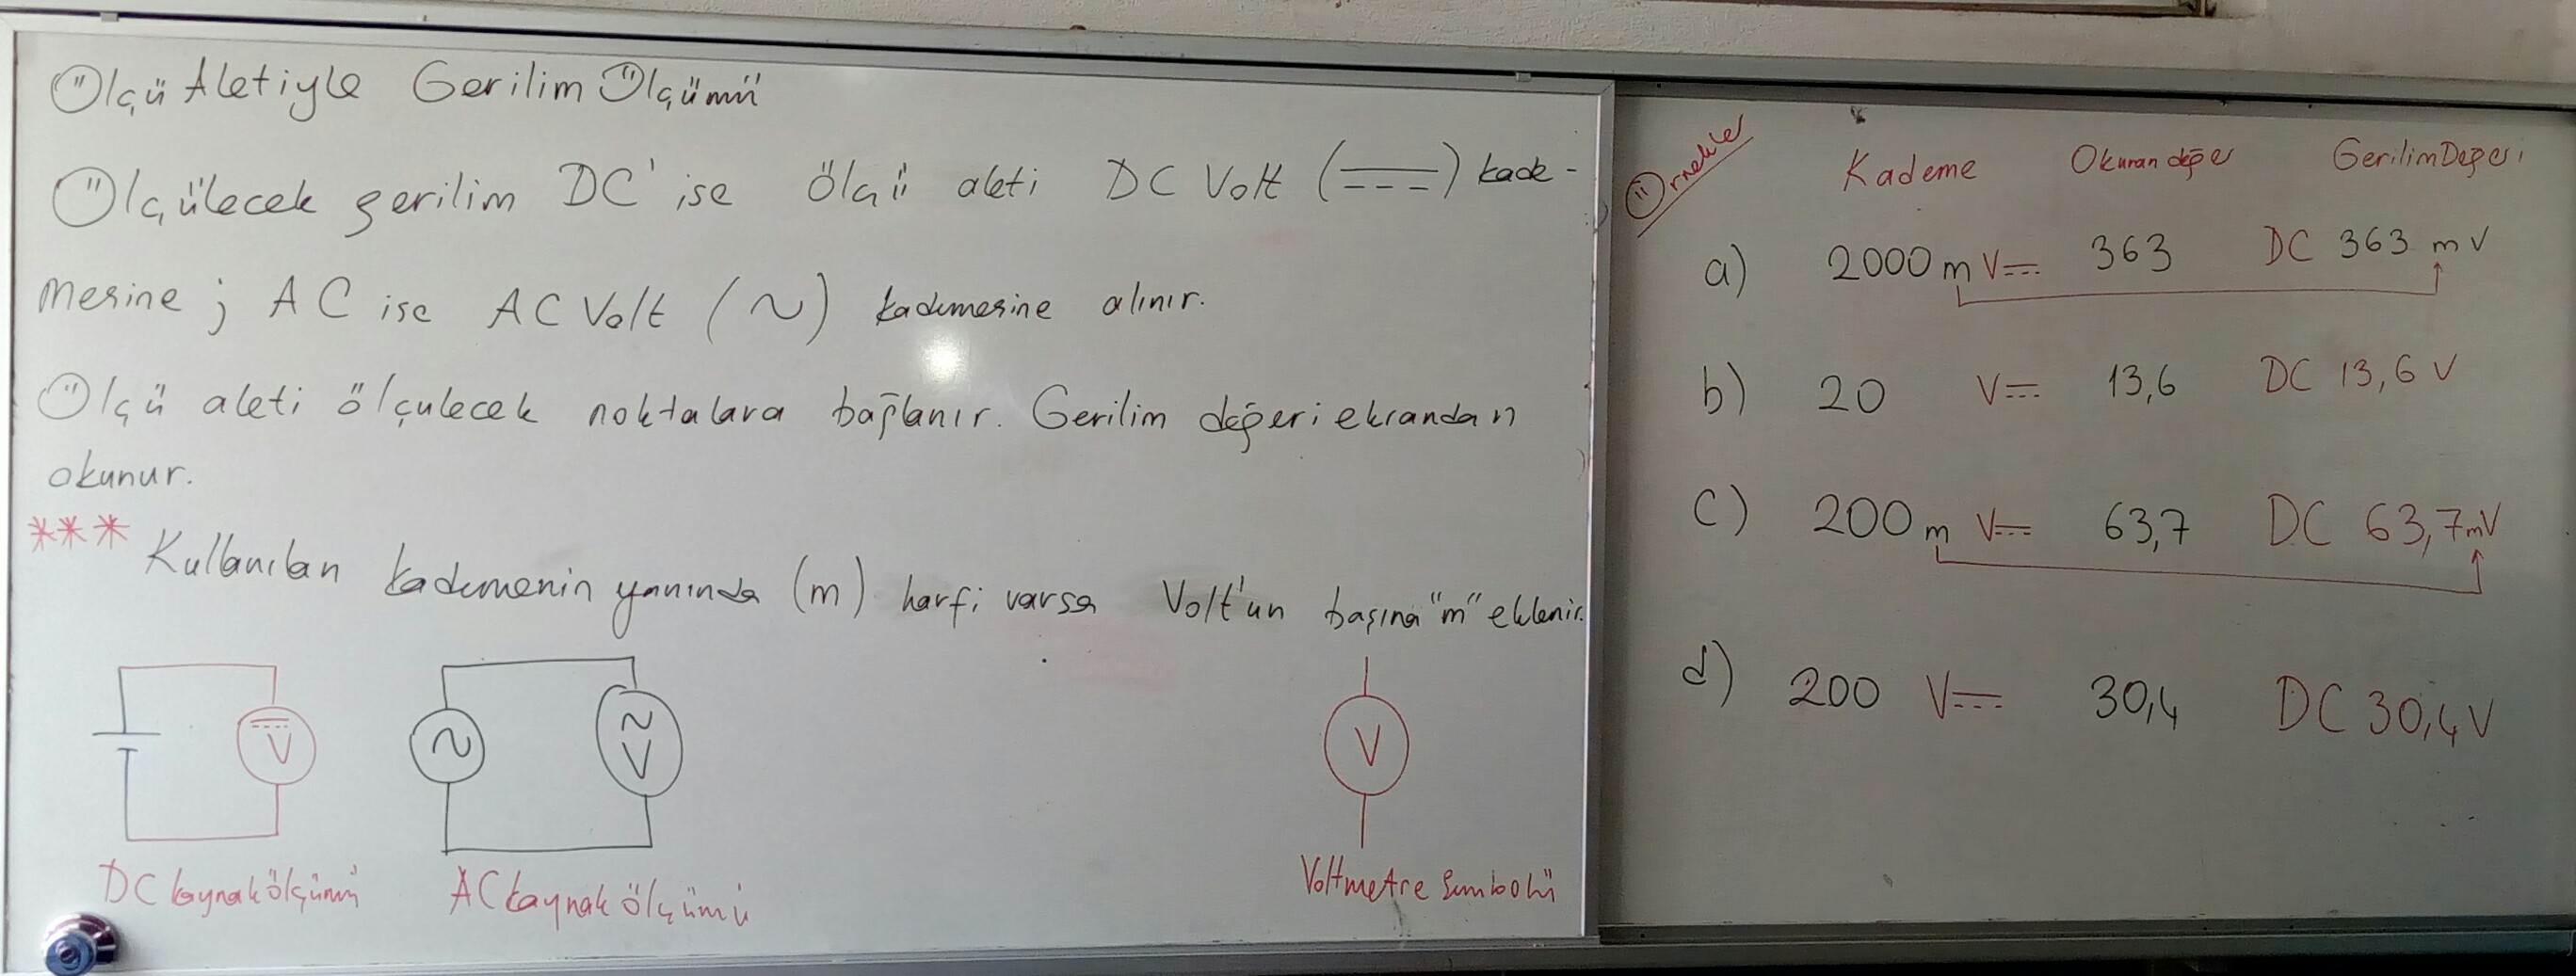 Ölçü Aletiyle Gerilim Ölçümü
Ölçülecek gerilim DC' ise ölçü aleti DC Volt (⎓) kade-
mesine ; AC ise AC Volt (~) kademesine alınır.
Ölçü aleti ölçulecek noktalara bağlanır. Gerilim değeri ekrandan
okunur.
*** Kullanılan kademenin yanında (m) harfi varsa Volt'un başına "m" eklenir.
V
~
~
V
V
DC kaynak ölçümü
AC kaynak ölçümü
Voltmetre Sembolü
Örnekler
Kademe Okunan değer Gerilim Değeri
a) 2000 m V⎓ 363 DC 363 mV
b) 20 V⎓ 13,6 DC 13,6 V
c) 200 m V⎓ 63,7 DC 63,7 mV
d) 200 V⎓ 30,4 DC 30,4 V